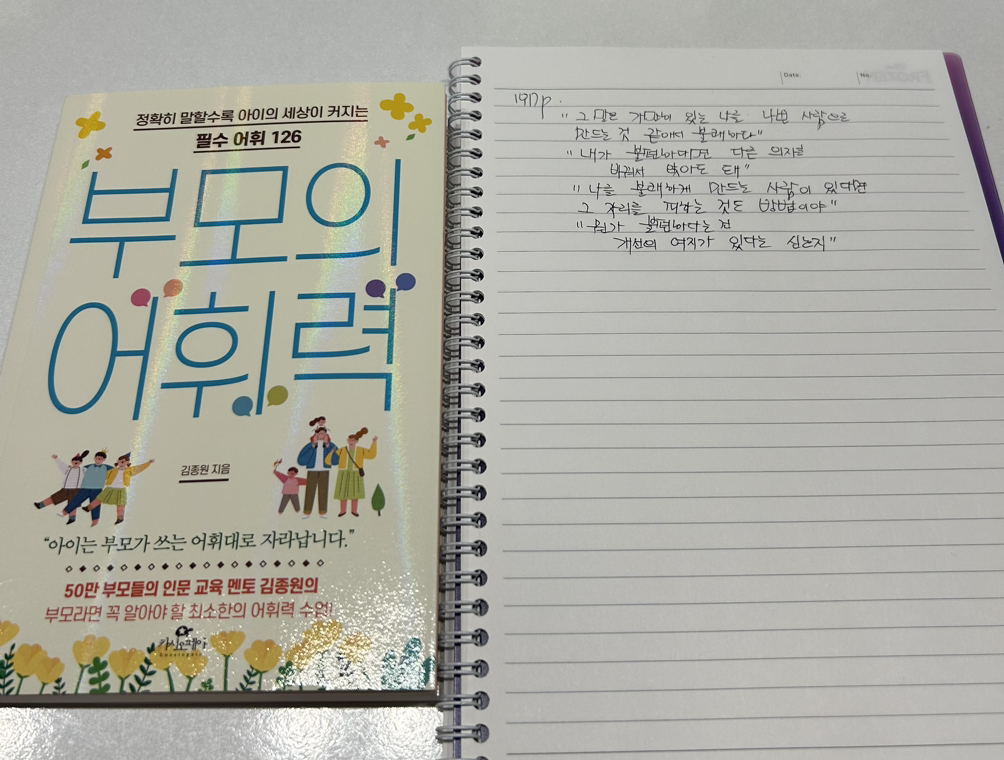 정확히 말할수록 아이의 세상이 커지는
필수 어휘 126
부모의
어휘력
김종원 지음
“아이는 부모가 쓰는 어휘대로 자라납니다.”
50만 부모들의 인문 교육 멘토 김종원의
부모라면 꼭 알아야 할 최소한의 어휘력 수업!
카시오페아
Date:
No.
FROZEN
197p.
"그 말은 가만히 있는 나를 나쁜 사람으로
만드는 것 같아서 불쾌하다"
"내가 불편하다면 다른 의자로
바꿔서 앉아도 돼"
"나를 불쾌하게 만드는 사람이 있다면
그 자리를 피하는 것도 방법이야"
"뭔가 불편하다는 건
개선의 여지가 있다는 신호지"